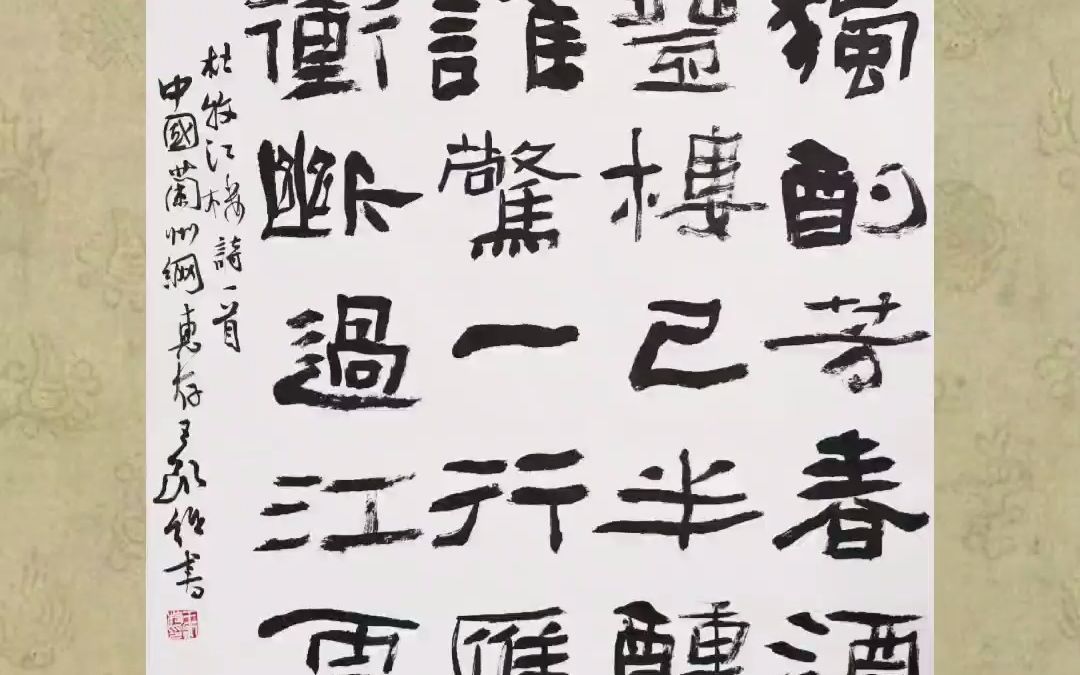 獨酌芳春酒
登樓已半醺
誰驚一行雁
衝斷過江
杜牧江樓詩一首
中國蘭州網惠存王書